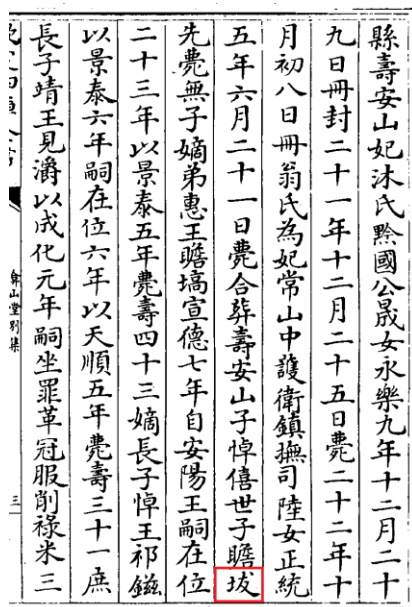 縣壽安山妃沐氏黔國公晟女永樂九年十二月二十
九日冊封二十一年十二月二十五日薨二十二年十
月初八日冊翁氏為妃常山中護衛鎮撫司陸女正統
五年六月二十一日薨合葬壽安山子悼僖世子瞻坺
先薨無子嫡弟惠王瞻塙宣德七年自安陽王嗣在位
二十三年以景泰五年薨壽四十三嫡長子悼王祁鎡
以景泰六年嗣在位六年以天順五年薨壽三十一庶
長子靖王見潚以成化元年嗣坐罪革冠服削祿米三
弇山堂別集
三